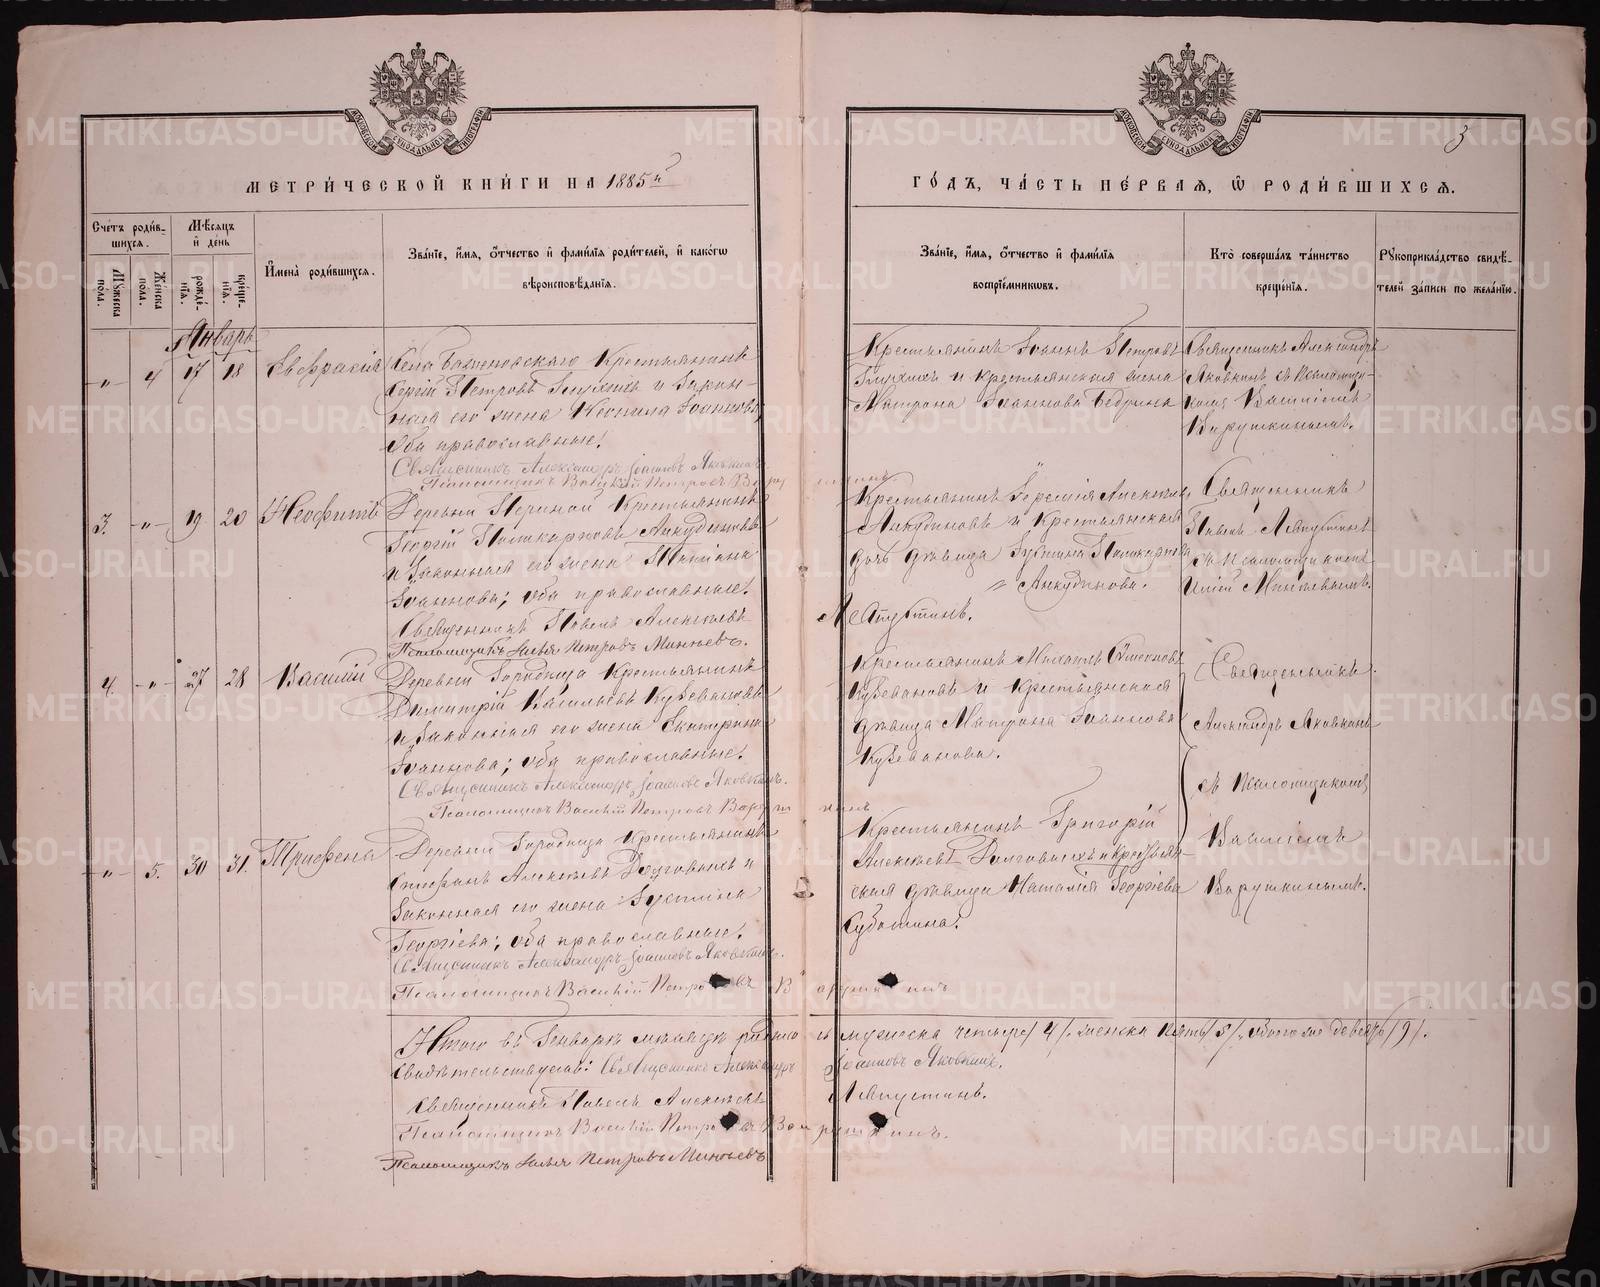 МЕТРИ́ЧЕСКОЙ КНИ́ГИ НА 1885й
ГО́ДЪ, ЧА́СТЬ ПЕ́РВАЯ, Ѡ РОДИ́ВШИХСЯ.
3
Счетъ роди́вшихся.
Мѣсяцъ и день
Мужеска пола.
Женска пола.
рожде́нія.
креще́нія.
Имена̀ роди́вшихся.
Зва́ніе, и́мя, о́тчество и фами́лія роди́телей, и како́гѡ
вѣроисповѣ́данія.
Зва́ніе, и́мя, о́тчество и фами́лія
воспріе́мниковъ.
Кто̀ соверша́лъ та́инство
креще́нія.
Рукоприкла́дство свидѣ́-
телей за́писи по жела́нію.
Январь
-„- 4 17 18 Евфрасія
Села Крестьянинъ
Сергій Петровъ Глухихъ и закон-
ная его жена Неонила Іоаннова,
оба православные.
Священникъ Александръ Іоанновъ Яковкинъ.
Псаломщикъ Василій Петровъ Варушкинъ
Крестьянинъ Іоаннъ Петровъ
Глухихъ и крестьянская жена
Матрона Іоаннова
Священникъ Александръ
Яковкинъ съ псаломщи-
комъ Василіемъ
Варушкинымъ.
3. -„- 19 20 Неофитъ
Деревни Крестьянинъ
Георгій Анкудиновъ
и законная его жена
Іоаннова; оба православные.
Священникъ Павелъ Алексѣевъ Левустинъ.
Псаломщикъ Илья Петровъ Минѣевъ.
Крестьянинъ Іеремія
Анкудиновъ и Крестьянская
дочь дѣвица
„ Анкудинова.
Священникъ
Павелъ
съ псаломщикомъ
Иліей
4. -„- 27 28 Василій
Деревни Городища Крестьянинъ
Димитрій Васильевъ Кузевановъ
и законная его жена Екатерина
Іоаннова; оба православные.
Священникъ Александръ Іоанновъ Яковкинъ.
Псаломщикъ Василій Петровъ Варушкинъ
Крестьянинъ Михаилъ
Кузевановъ и Крестьянская
дѣвица Матрона Іоаннова
Кузеванова.
Священникъ
Александръ Яковкинъ
съ псаломщикомъ
Василіемъ
Варушкинымъ.
-„- 5. 30 31. Трифена
Деревни Городища Крестьянинъ
Стефанъ Алексѣевъ Долговыхъ и
законная его жена Іустина
Георгіева; оба православные.
Священникъ Александръ Іоанновъ Яковкинъ.
Псаломщикъ Василій Петровъ Варушкинъ
Крестьянинъ Григорій
Алексѣевъ Долговыхъ и крестьян-
ская дѣвица Наталія Георгіева
Субботина.
Итого въ Генварѣ мѣсяцѣ мужеска четыре /4/. женска пять /5/. обоего девять /9/.
Свидѣтельствуемъ: Священникъ Александръ Іоанновъ Яковкинъ.
Священникъ Павелъ Алексѣевъ Левустинъ.
Псаломщикъ Василій Петровъ Варушкинъ.
Псаломщикъ Илья Петровъ Минѣевъ
METRIKI.GASO-URAL.RU